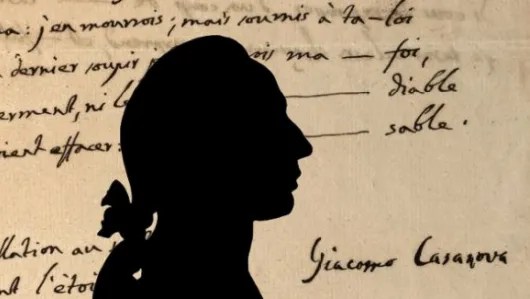 : j'en mourrois ; mais soumis à ta — loi
dernier soupir ois ma — foi,
ment, ni le diable
ient effacer : sable .
llation au Giacomo Casanova
nt l'étoi